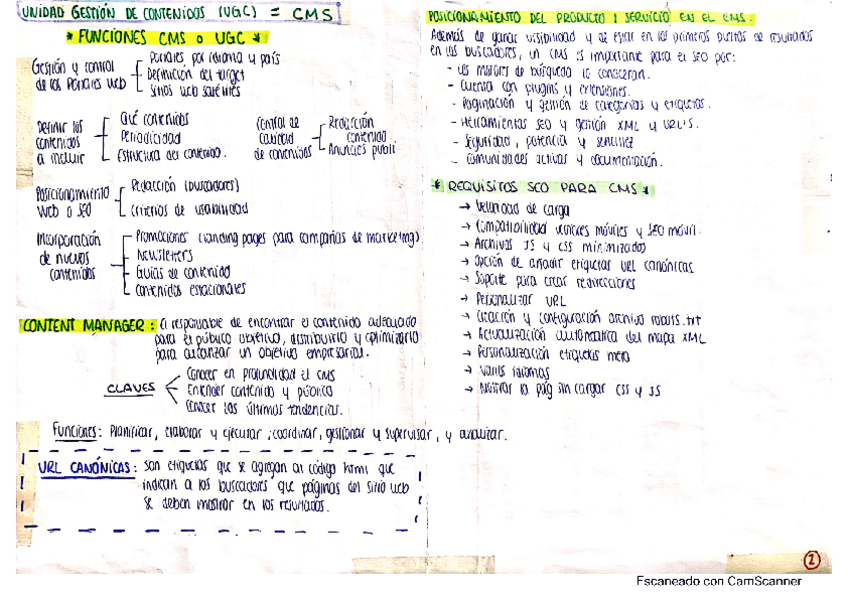 UNIDAD GESTIÓN DE CONTENIDOS (UGC) = CMS
* FUNCIONES CMS o UGC *
Gestión y control de los Portales Web
Portales por idioma y país
Definición del target
Sitios web satélites
Definir los contenidos a incluir
Qué contenidos
Periodicidad
Estructura del contenido.
Control de calidad de contenidos
Redacción contenido
Anuncios publi
Posicionamiento Web o SEO
Redacción (buscadores)
Criterios de usabilidad
Incorporación de nuevos contenidos
Promociones (landing pages para campañas de marketing)
Newsletters
Guías de contenido
Contenidos estacionales
CONTENT MANAGER: El responsable de encontrar el contenido adecuado
para el público objetivo, distribuirlo y optimizarlo
para alcanzar un objetivo empresarial.
CLAVES
Conocer en profundidad el CMS
Entender contenido y público
Conocer las últimas tendencias.
Funciones: Planificar, elaborar y ejecutar; coordinar, gestionar y supervisar, y analizar.
URL CANÓNICAS: son etiquetas que se agregan al código html que
indican a los buscadores que páginas del sitio web
se deben mostrar en los resultados.
POSICIONAMIENTO DEL PRODUCTO / SERVICIO EN EL CMS.
Además de ganar visibilidad y de estar en los primeros puntos de resultados
en los buscadores, un CMS es importante para el SEO por:
- Los motores de búsqueda lo conocerán.
- Cuenta con plugins y extensiones.
- Paginación y gestión de categorías y etiquetas.
- Herramientas SEO y gestión XML y URL'S.
- Seguridad, potencia y sencillez
- Comunidades activas y documentación.
* REQUISITOS SEO PARA CMS *
→ Velocidad de carga
→ Compatibilidad versiones móviles y SEO móvil.
→ Archivos JS y CSS minimizados
→ Opción de añadir etiquetas URL canónicas
→ Soporte para crear redirecciones
→ Personalizar URL
→ Creación y configuración archivo robots.txt
→ Actualización automática del mapa XML
→ Personalización etiquetas meta
→ Varios idiomas
→ Mostrar la pág sin cargar CSS y JS
2
Escaneado con CamScanner